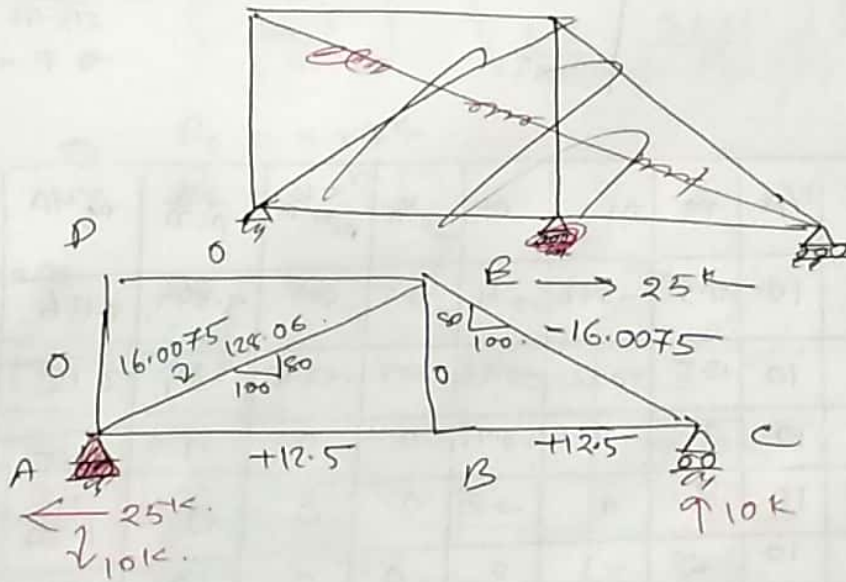 D
0
E → 25 K
16.0075
128.06
80
100
80
100
-16.0075
0
0
+12.5
+12.5
A
B
C
← 25 K.
↓ 10 K.
↑ 10 K